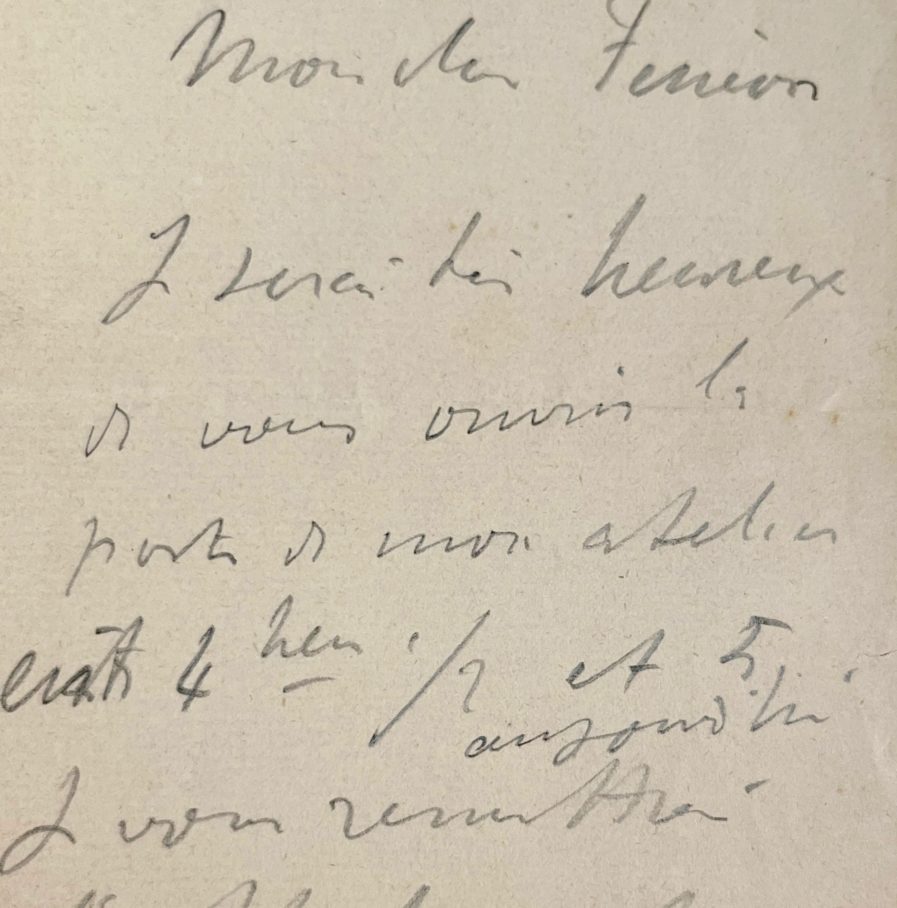 Mon cher
Je serai très heureux
de vous ouvrir la
porte de mon atelier
entre 4 heu. 1/2 et 5
aujourd'hui
Je vous remettrai